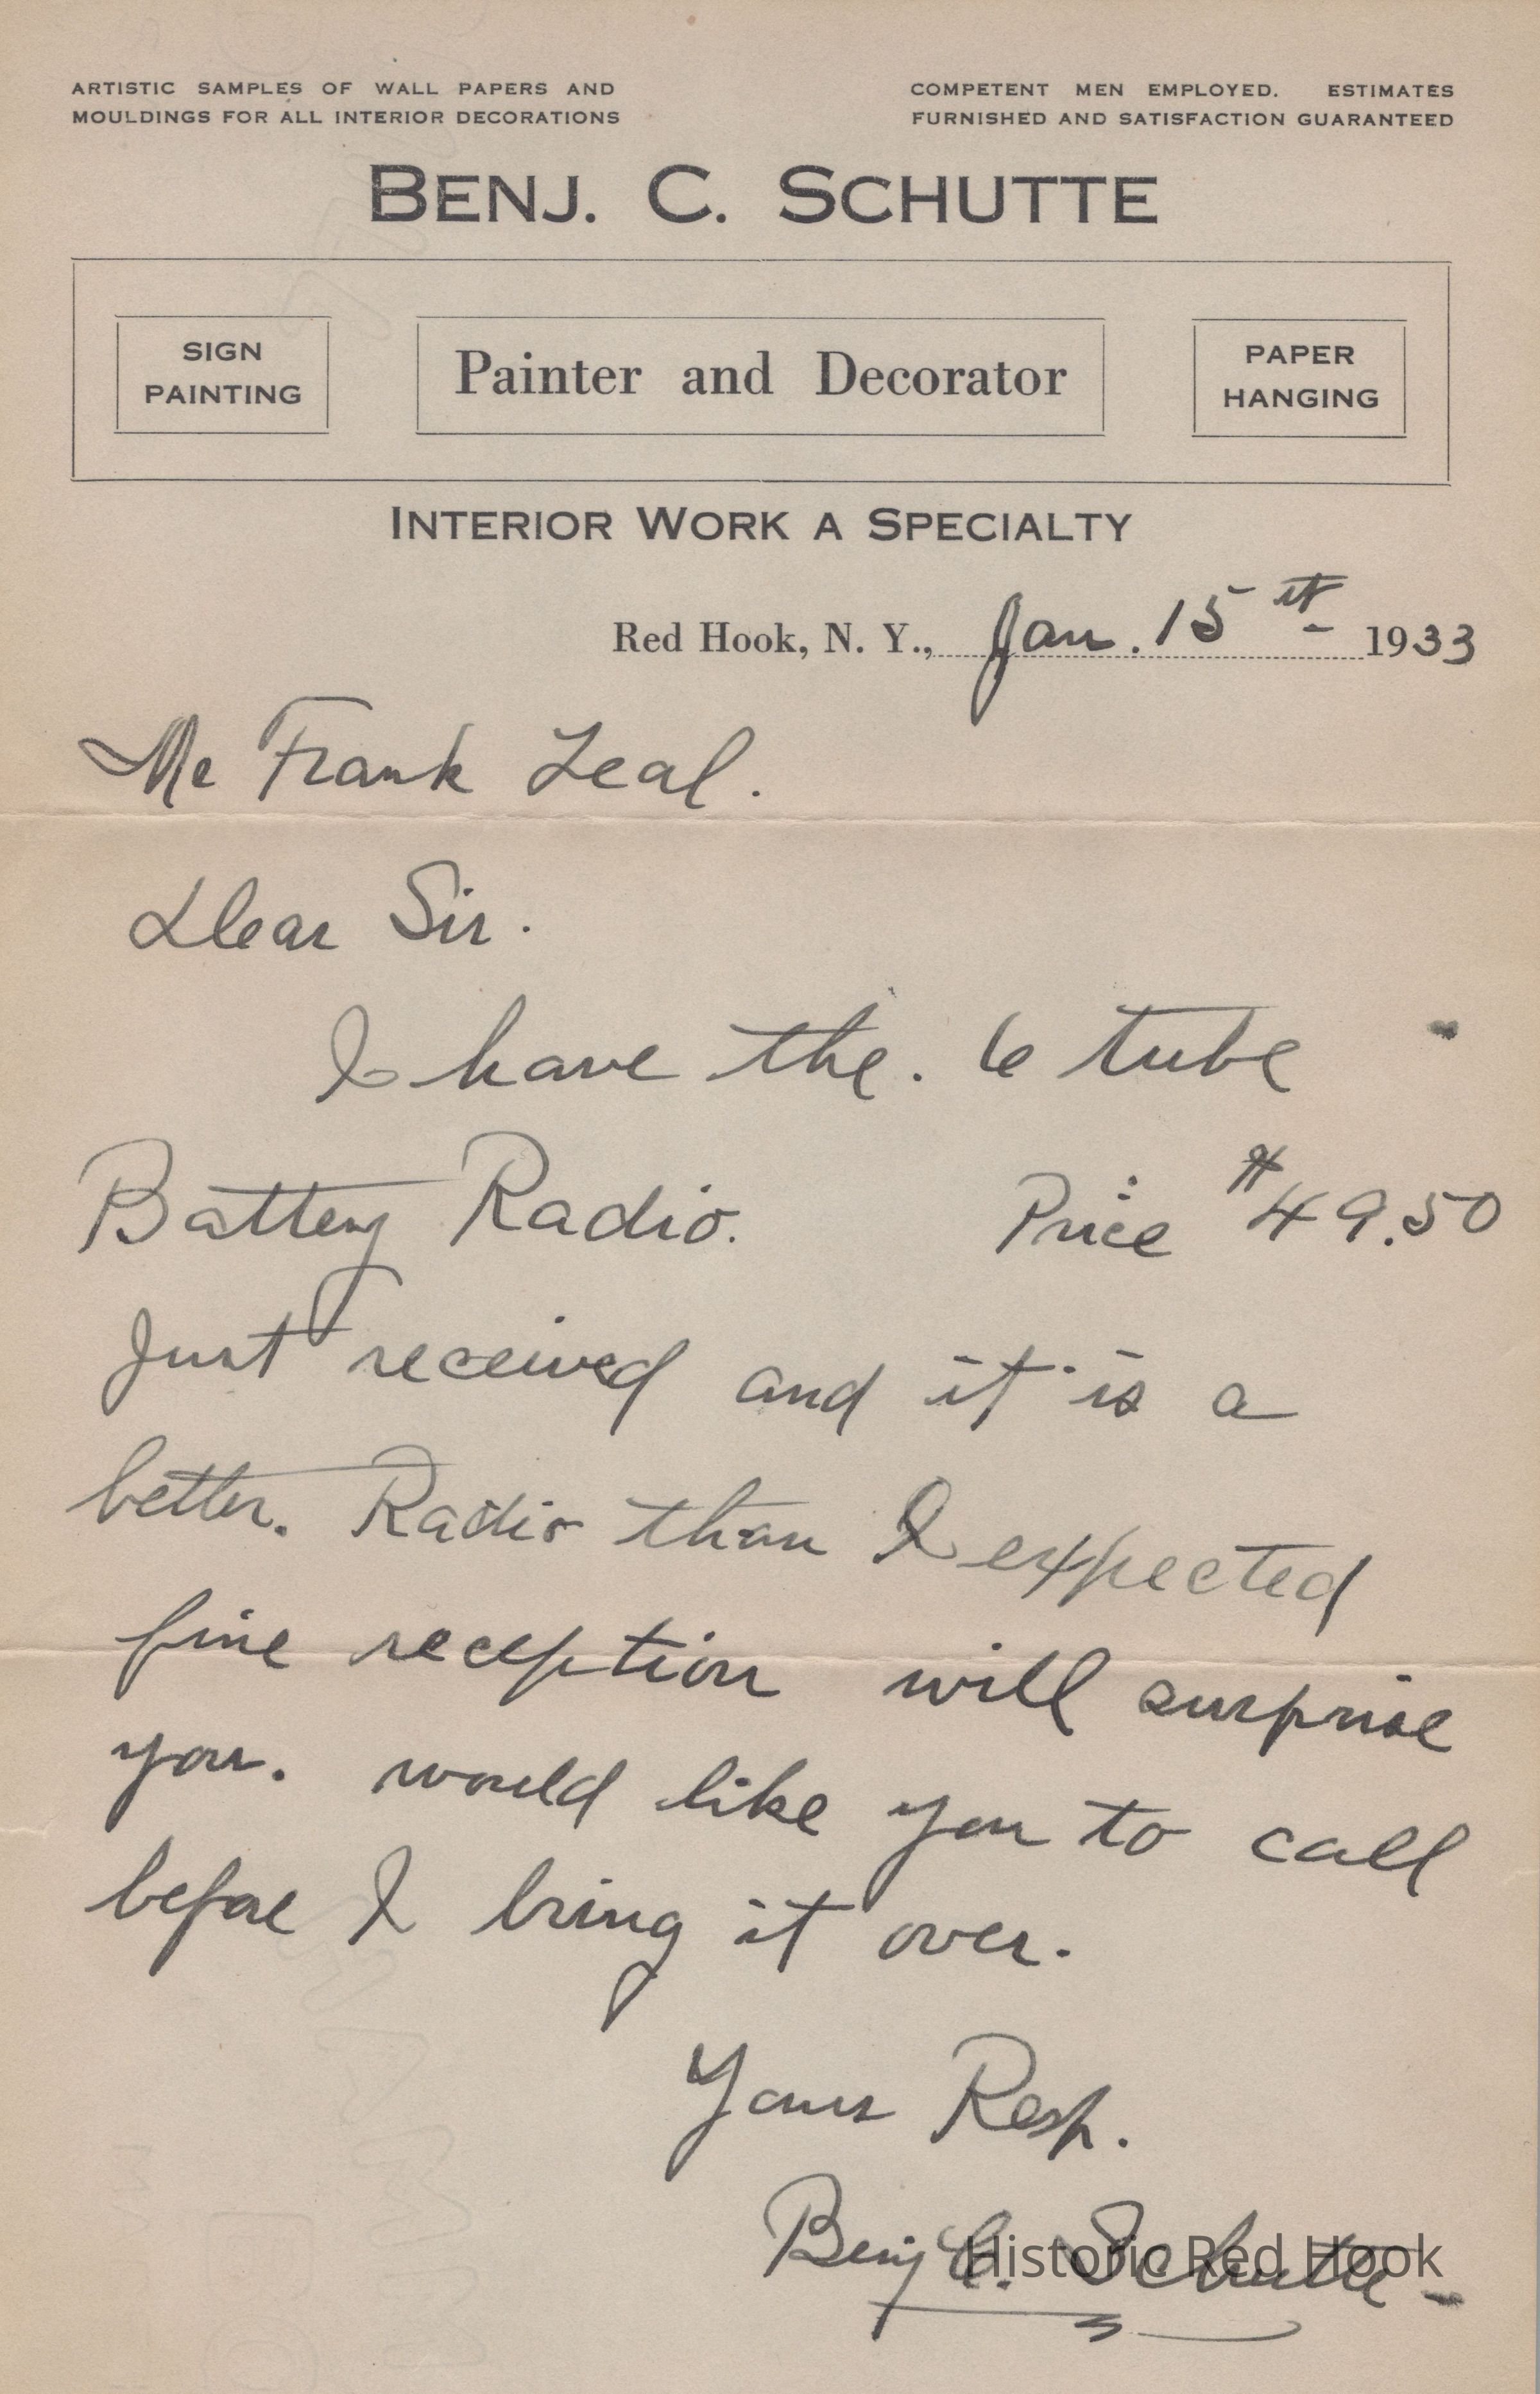 ARTISTIC SAMPLES OF WALL PAPERS AND
MOULDINGS FOR ALL INTERIOR DECORATIONS
COMPETENT MEN EMPLOYED. ESTIMATES
FURNISHED AND SATISFACTION GUARANTEED
BENJ. C. SCHUTTE
SIGN
PAINTING
Painter and Decorator
PAPER
HANGING
INTERIOR WORK A SPECIALTY
Red Hook, N. Y., Jan. 15th 1933
Mr Frank Teal.
Dear Sir.
I have the. 6 tube
Battery Radio. Price $49.50
Just received and it is a
better. Radio than I expected
fine reception will surprise
you. would like you to call
before I bring it over.
Yours Resp.
Benj C. Schutte
Historic Red Hook